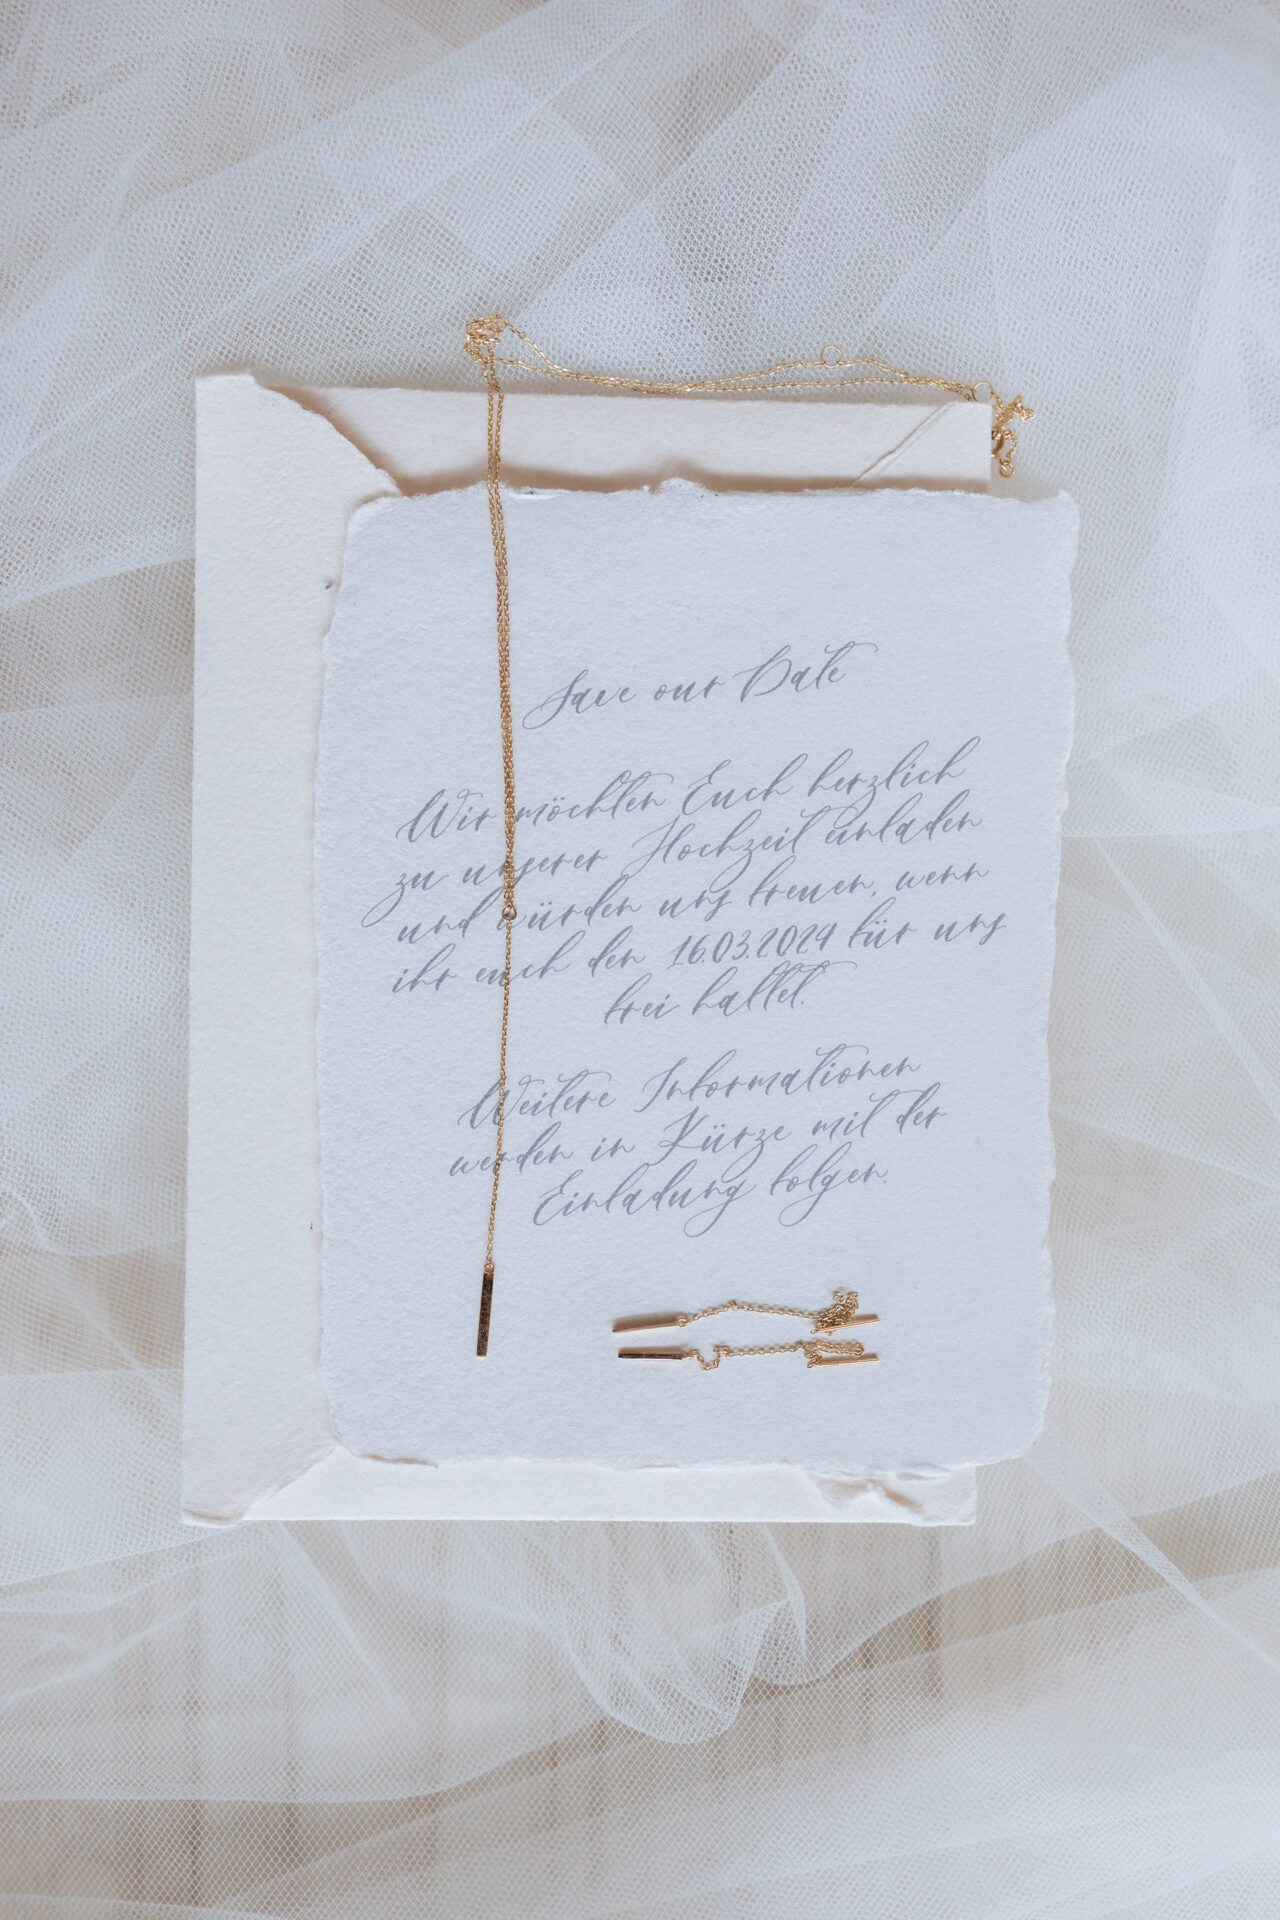 Save our Date
Wir möchten Euch herzlich
zu unserer Hochzeit einladen
und würden uns freuen, wenn
ihr euch den 16.03.2024 für uns
frei haltet.
Weitere Informationen
werden in Kürze mit der
Einladung folgen.